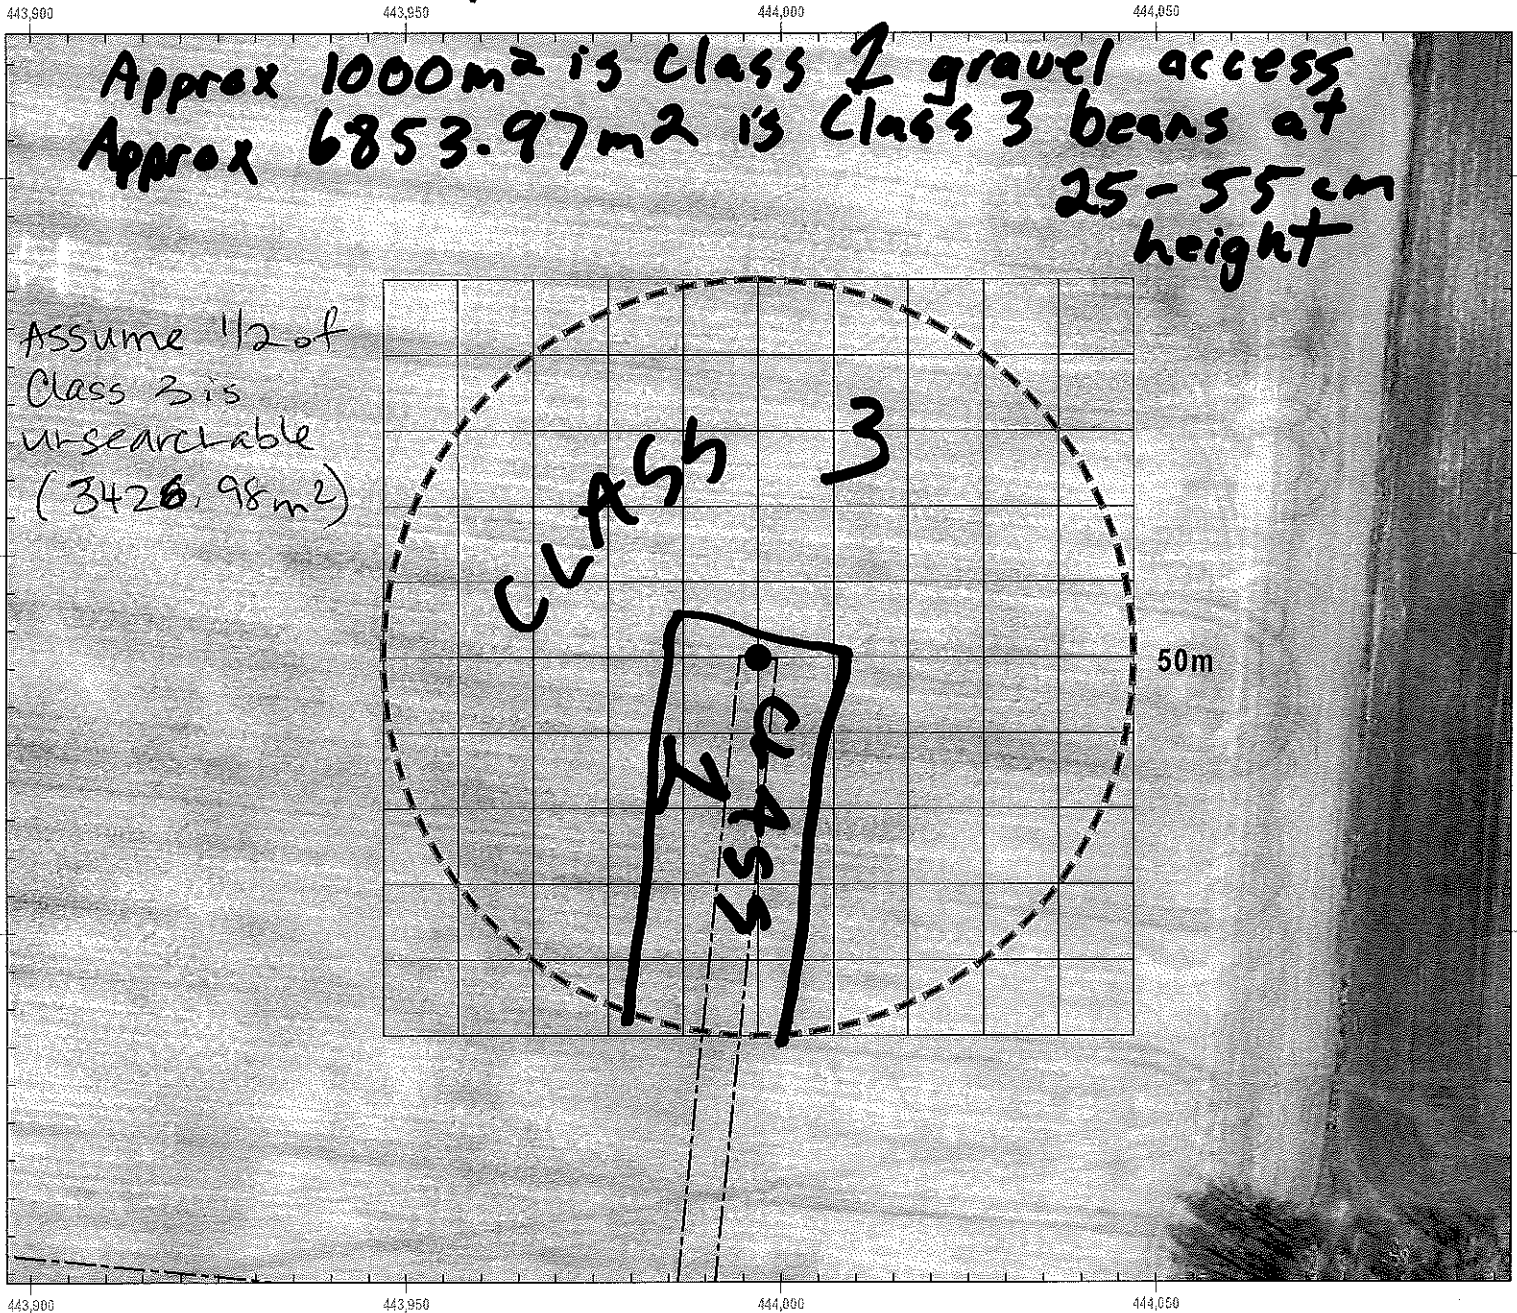 443,900 443,950 444,000 444,050
Approx 1000m² is Class 1 gravel access
Approx 6853.97m² is Class 3 beans at
25-55cm
height
Assume 1/2 of
Class 3 is
unsearchable
(3426.98m²)
CLASS 3
50m
CLASS 1
443,900 443,950 444,000 444,050